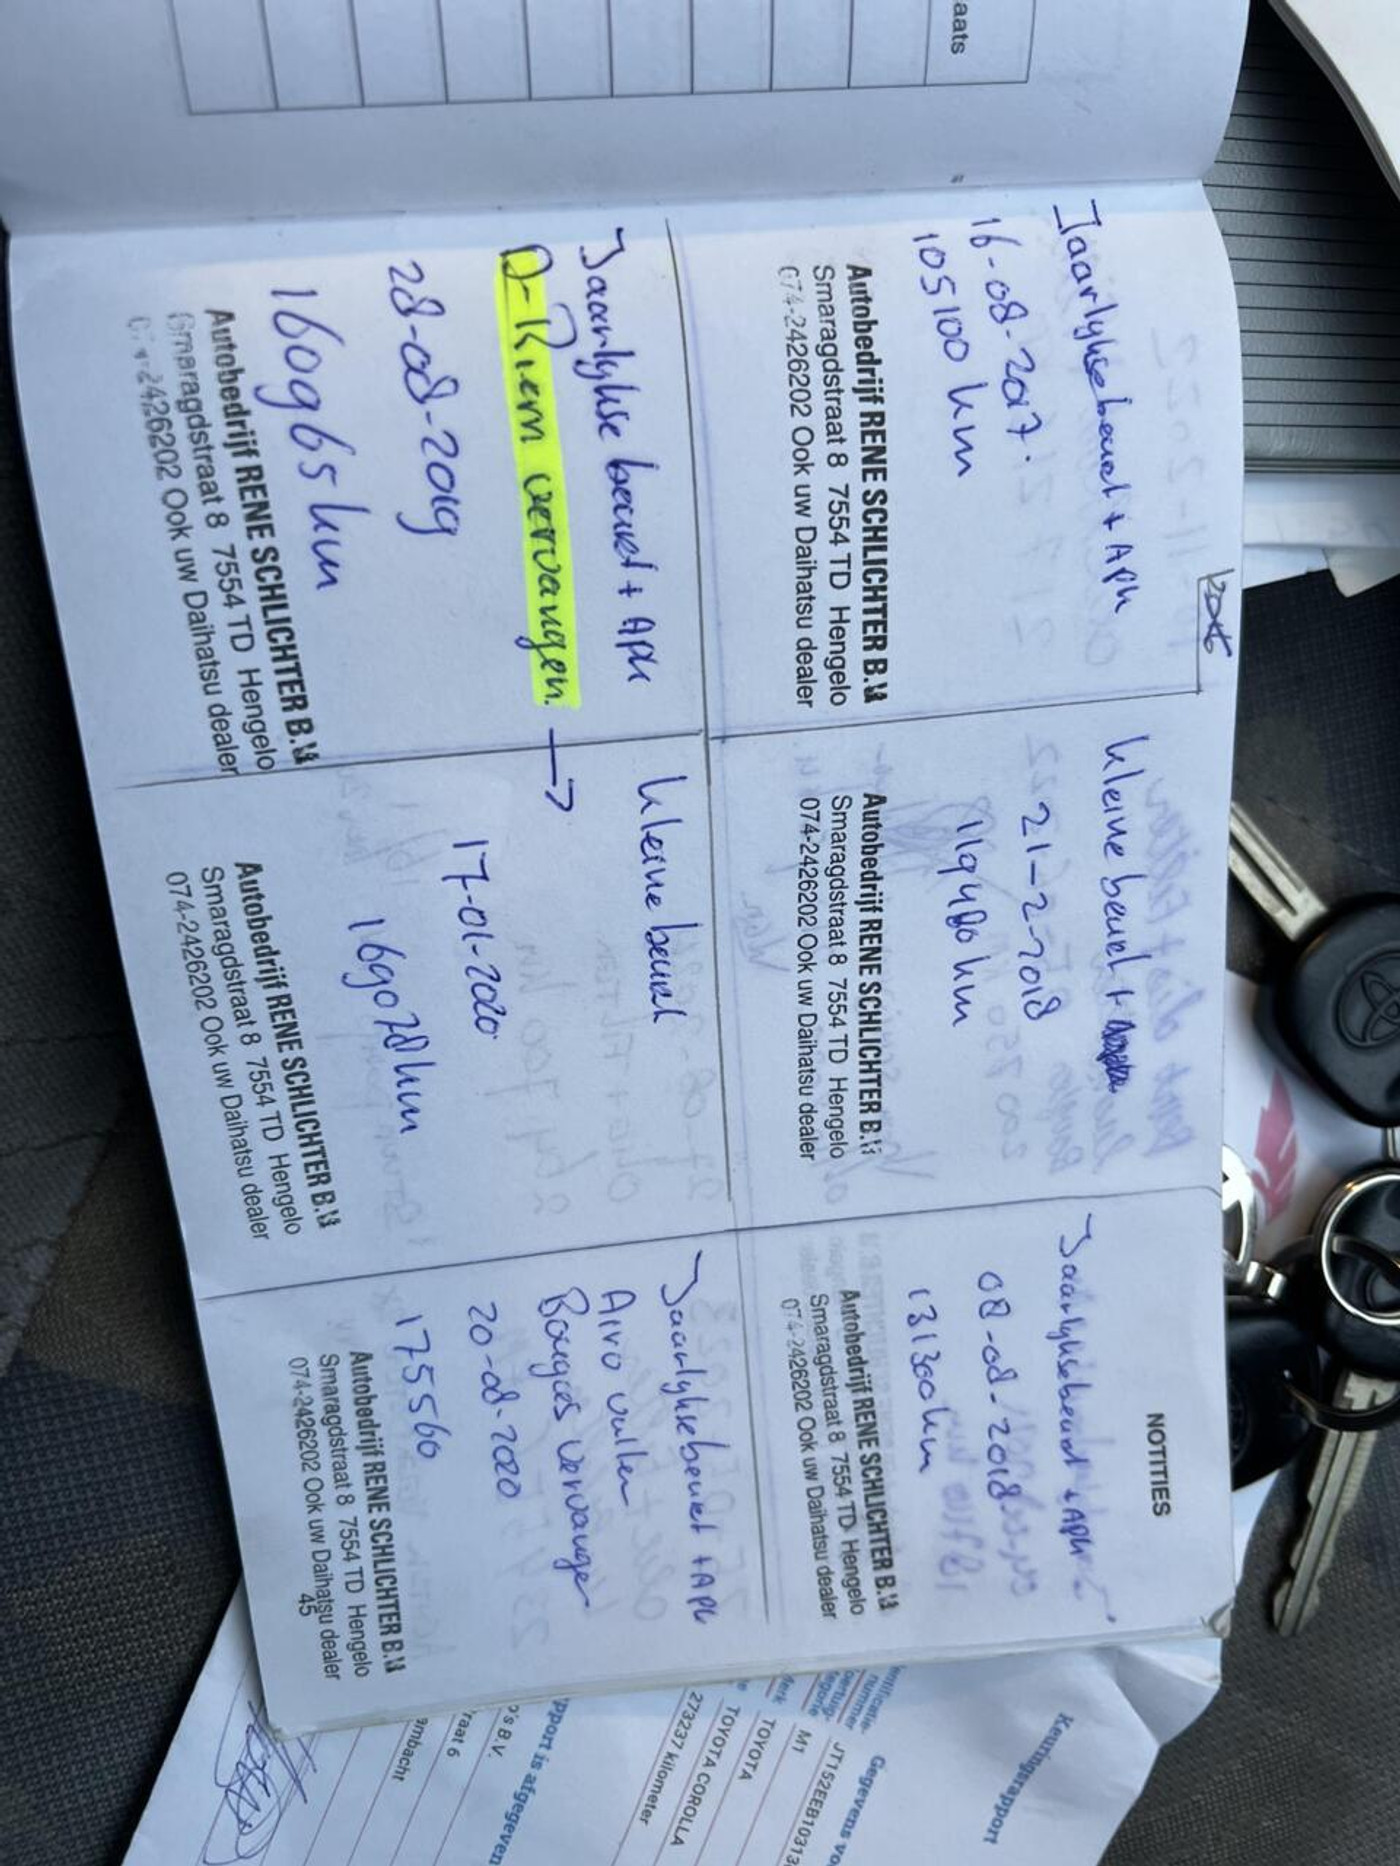 aats
NOTITIES
Jaarlijkse beurt + APK
16-08-2017.
105100 km
Autobedrijf RENE SCHLICHTER B.V.
Smaragdstraat 8 7554 TD Hengelo
074-2426202 Ook uw Daihatsu dealer
Kleine beurt +
21-2-2018
119480 km
Autobedrijf RENE SCHLICHTER B.V.
Smaragdstraat 8 7554 TD Hengelo
074-2426202 Ook uw Daihatsu dealer
Jaarlijkse beurt + APK
08-08-2018
131300 km
Autobedrijf RENE SCHLICHTER B.V.
Smaragdstraat 8 7554 TD Hengelo
074-2426202 Ook uw Daihatsu dealer
Jaarlijkse beurt + APK
D-Riem vervangen. →
28-08-2019
160965 km
Autobedrijf RENE SCHLICHTER B.V.
Smaragdstraat 8 7554 TD Hengelo
2426202 Ook uw Daihatsu dealer
Kleine beurt
17-01-2020
169078 km
Autobedrijf RENE SCHLICHTER B.V.
Smaragdstraat 8 7554 TD Hengelo
074-2426202 Ook uw Daihatsu dealer
Jaarlijkse beurt + APK
Airo vullen
Bougies vervangen
20-08-2020
175560
Autobedrijf RENE SCHLICHTER B.V.
Smaragdstraat 8 7554 TD Hengelo
074-2426202 Ook uw Daihatsu dealer
45
Keuringsrapport
Gegevens vo
JT152EEB10313
nummer
M1
TOYOTA
TOYOTA COROLLA
273237 kilometer
pport is afgegeven
's B.V.
raat 6
ambacht